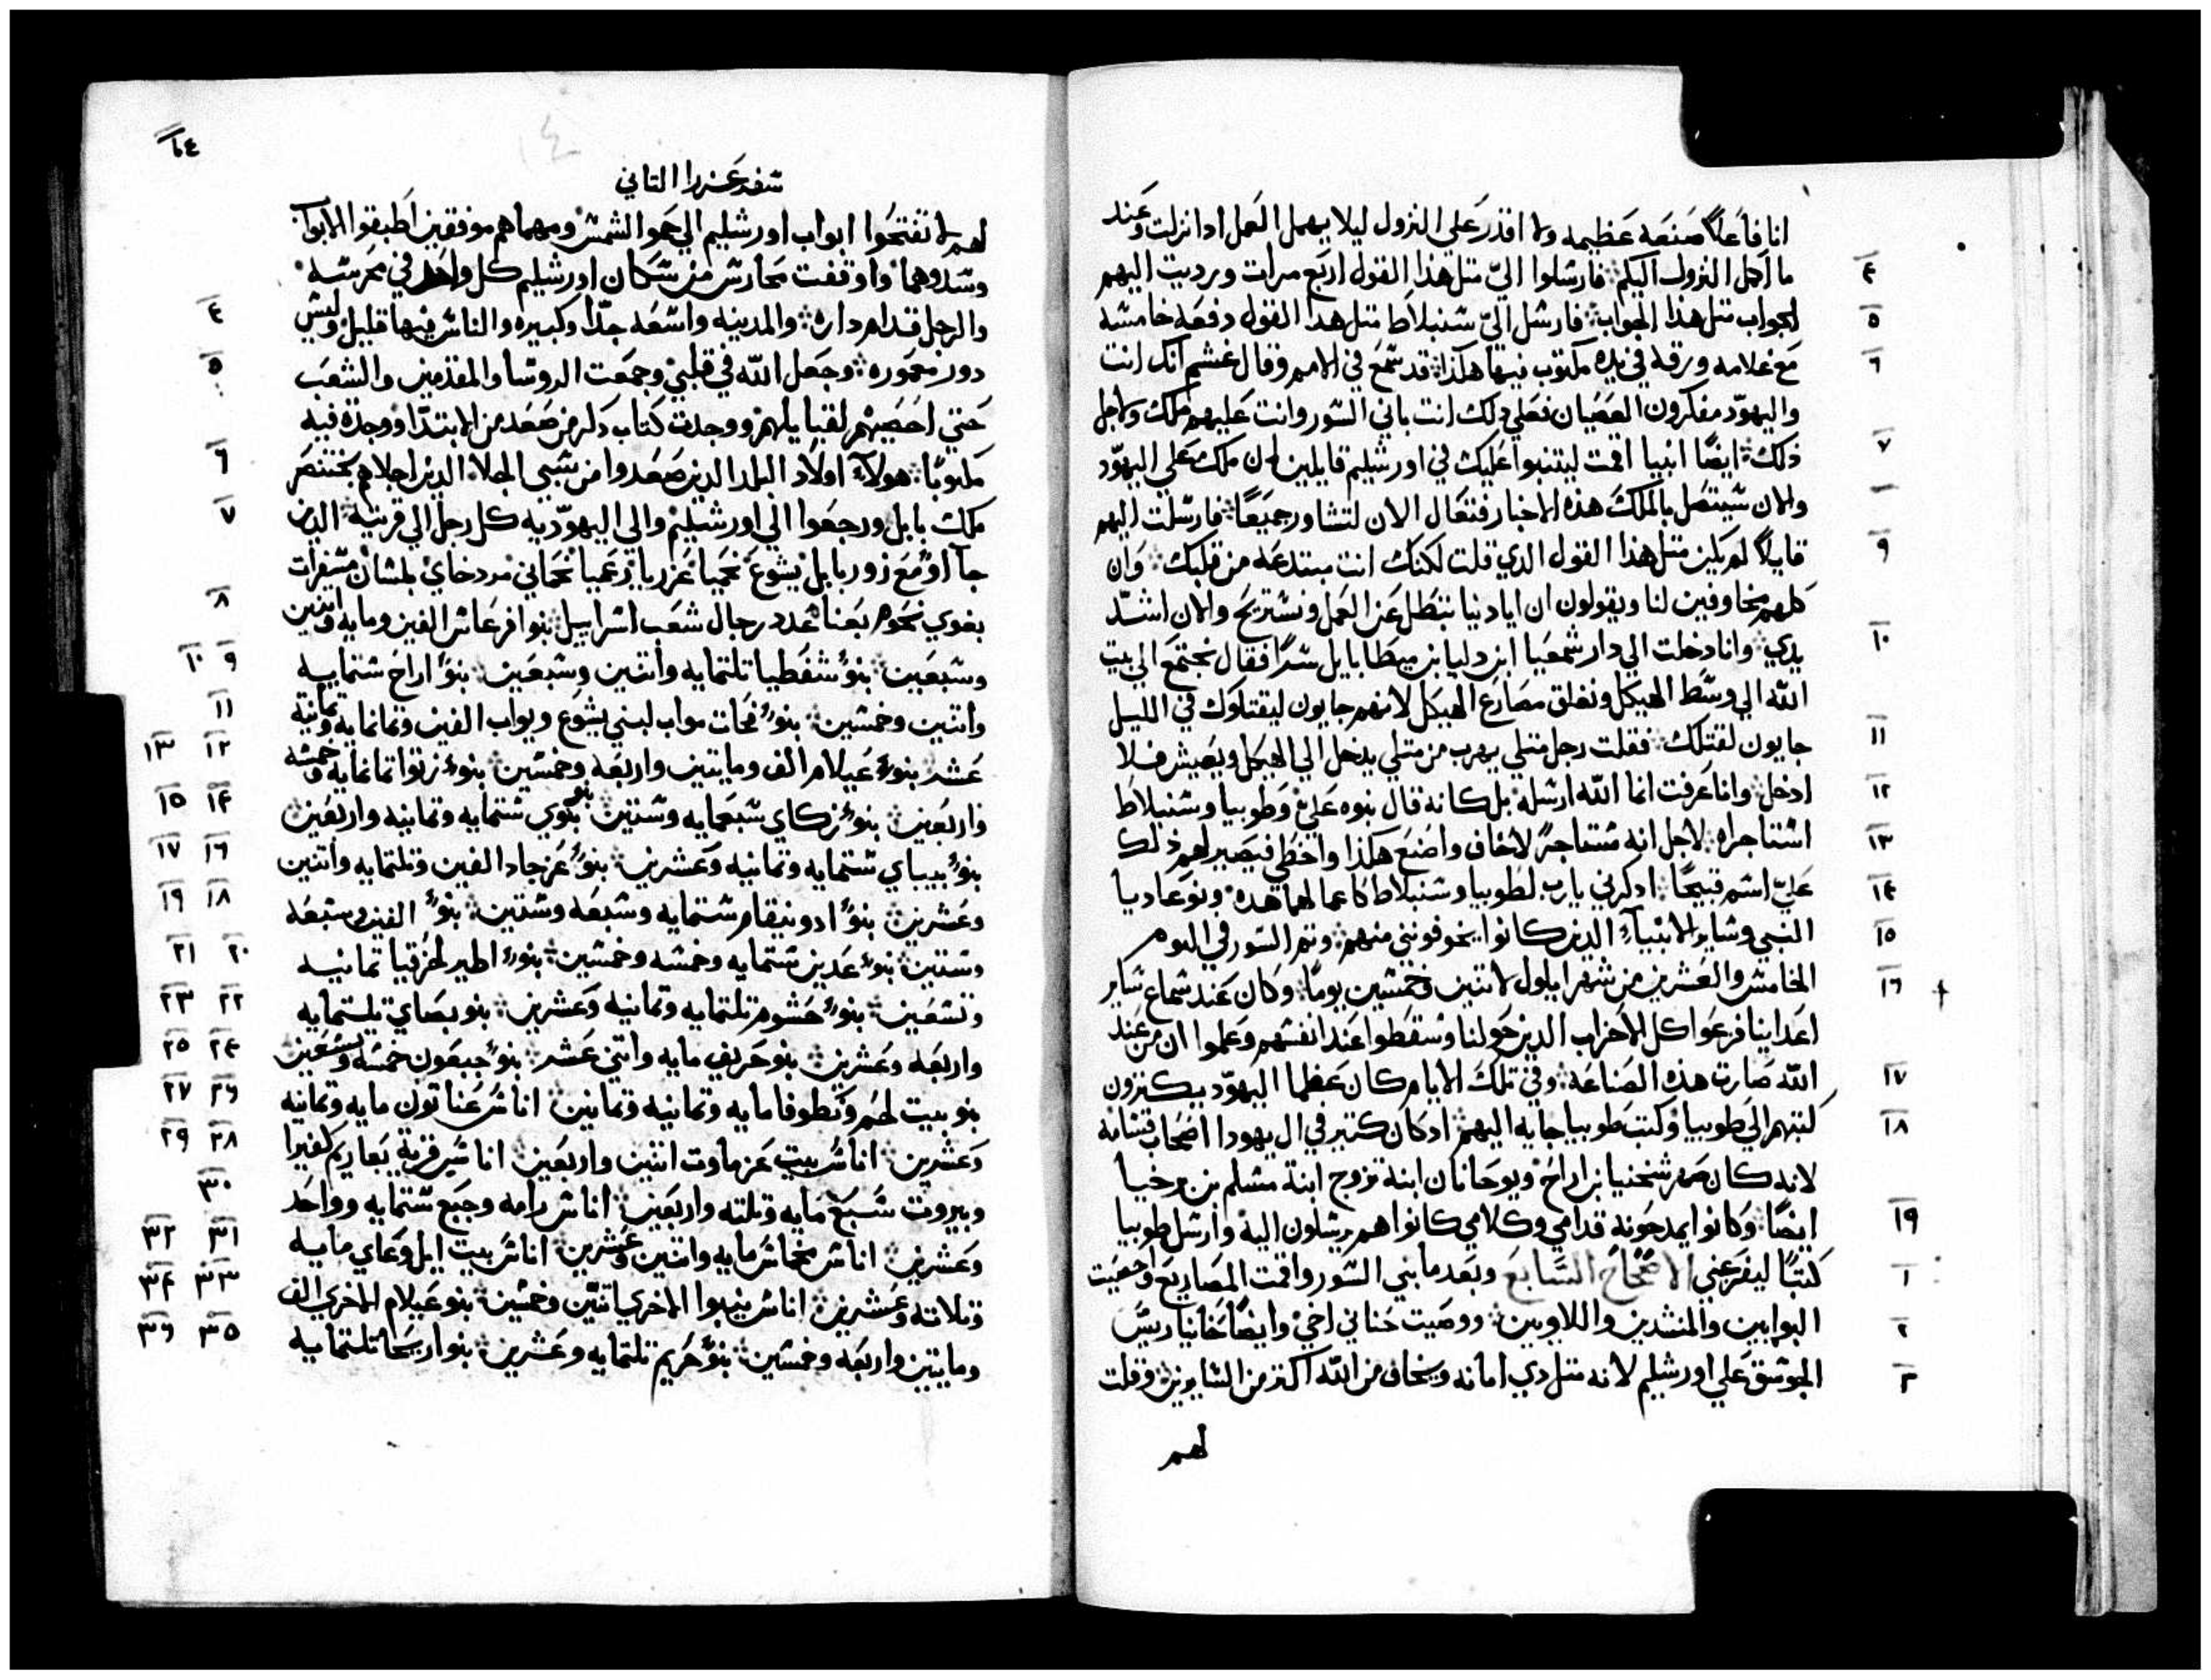 انا فاعلاً صنعه عظيمه ولا اقدر علي النزول ليلا يهمل العمل ادا نزلت وعند
ما اكمل النزول اليكم فارشلوا اليّ متل هذا القول اربع مرات ورديت اليهم
٤
الجواب متل هذا الجواب فارشل اليّ شنبلاط متل هدا القول دفعه خامشه
٥
مع غلامه ورقه في يده مكتوب فيها هكذا قد شمع في الامم وقال غشم انك انت
٦
واليهوّد مفكرون العصيان فعلي دلك انت باني الشور وانت عليهم ملك ولاجل
ذلك ايضًا انبيا اقمت ليتنبوا عليك في اورشليم قايلين ان ملك علي اليهوّد
٧
والان شيتصل بالملك هذه الاخبار فتعال الان لنتشاور جميعًا فارشلت اليهم
قايلاً لم يكن متل هذا القول الدي قلت لكنك انت مبتدعه من قلبك وان
٩
كلهم مخاوفين لنا ويقولون ان ايادينا تبطل عن العمل ونشتريح والان اشدّ
يدي وانا دخلت الي دار شمعيا ابن دليا بن ميطابايل شرًا فقال نجتمع الي بيت
١٠
الله الي وشط الهيكل ونغلق مصارع الهيكل لانهم جايون ليقتلوك في الليل
جايون لقتلك فقلت رجل متلي يهرب من متلي يدخل الي الهيكل ويعيش فلا
١١
ادخل وانا عرفت انما الله ارشله بل كانه قال نبوه عليّ وطوبيا وشنبلاط
١٢
اشتاجراه لاجل انه مشتاجرً لاخاف واصنع هكذا واخطي فيصير لهم ذلك
١٣
عليّ اشم قبيحًا ادكرني يارب لطوبيا وشنبلاط كاعمالهما هده ونوعاديا
١٤
النبي وشاير الانبياء الدين كانوا يخوفونني منهم وتم الشور في اليوم
١٥
الخامش والعشرين من شهر ايلول لاتنين وخمشين يومًا وكان عند شماع شاير
١٦ †
اعداينا فزعوا كل الاحزاب الدين حولنا وشقطوا عند انفشهم وعلموا ان من عند
الله صارت هذه الصناعه وفي تلك الايام كان عظما اليهوّد يكترون
١٧
كتبهم الي طوبيا وكتب طوبيا جايه اليهم اد كان كتير في ال يهودا اصحاب قشامه
١٨
لانه كان صهر شخنيا بن اراح ويوحانان ابنه تزوج ابنة مشلم بن برخيا
ايضًا وكانوا يمدحونه قدامي وكلامي كانوا هم يرشلون اليه وارشل طوبيا
١٩
كتبًا ليفزعني الاصحاح الشابع وبعد ما بني الشور واقمت المصاريع واحصيت
١
البوابين والمنشدين واللاويين ووصيت حناني اخي وايضًا حانيا رييّش
٢
الجوشق علي اورشليم لانه متل دي امانه ويخاف من الله اكتر من الشايرين وقلت
٣
لهم
٦٤
١٤
شفر عزرا التاني
لهم لا تفتحوا ابواب اورشليم الي حمو الشمش ومهما هم موفقين اطبقوا الابواب
وشدوهما واوقفت محارش من شكان اورشليم كل واحد في محرشه
والرجل قدام داره والمدينه واشعه جدًا وكبيره والناش فيها قليل وليش
٤
دور معموره وجعل الله في قلبي وجمعت الروشا والمقدمين والشعب
٥
حتي احصيهم لقبايلهم ووجدت كتاب دكر من صعد من الابتدا ووجدة فيه
مكتوبًا هولاء اولاد البلد الدين صعدوا من شبي الجلاء الدين اجلاهم بختنصر
٦
ملك بابل ورجعوا الي اورشليم والي اليهوّديه كل رجل الي قريته الدين
٧
جآاو مع زوربابل يشوع نحميا عزريا رعميا نحماني مردخاي بلشان مشفرات
بغوي نحوم بعنا عدد رجال شعب اشراييل بنو افرعاش الفين ومايه واتنين
٨
وشبعين بنو شفطيا تلتمايه واتنين وشبعين بنو اراح شتمايه
٩ ١٠
واتنين وخمشين بنو فحات مواب لبني يشوع ويواب الفين وتمانمايه وتمانية
١١
عشر بنو عيلام الف ومايتين واربعه وخمشين بنو زتوا تمانمايه وخمشه
١٢ ١٣
واربعين بنو زكاي شبعمايه وشتين بنو بنوي شتمايه وتمانيه واربعين
١٤ ١٥
بنو بيباي شتمايه وتمانيه وعشرين بنو عزجاد الفين وتلتمايه واتنين
١٦ ١٧
وعشرين بنو ادونيقام شتمايه وشبعه وشتين بنو الفين وشبعه
١٨ ١٩
وشتين بنو عدين شتمايه وخمشه وخمشين بنو اطير لحزقيا تمانيه
٢٠ ٢١
وتشعين بنو حشوم تلتمايه وتمانيه وعشرين بنو بصاي تلتمايه
٢٢ ٢٣
واربعه وعشرين بنو حريف مايه واتني عشر بنو جبعون خمشه وتشعين
٢٤ ٢٥
بنو بيت لحم ونطوفا مايه وتمانيه وتمانين اناش عناتون مايه وتمانيه
٢٦ ٢٧
وعشرين اناش بيت عزماوت اتنين واربعين اناش قرية يعاريم كفيرا
٢٨ ٢٩
وبيروت شبع مايه وتلته واربعين اناش رامه وجبع شتمايه وواحد
٣٠
وعشرين اناش مخماش مايه واتنين وعشرين اناش بيت ايل وعاي مايه
٣١ ٣٢
وتلاته وعشرين اناش ينبوا الاخري اتنين وخمشين بنو عيلام الاخري الف
٣٣ ٣٤
ومايتين واربعه وخمشين بنو حريم تلتمايه وعشرين بنو اريحا تلتمايه
٣٥ ٣٦